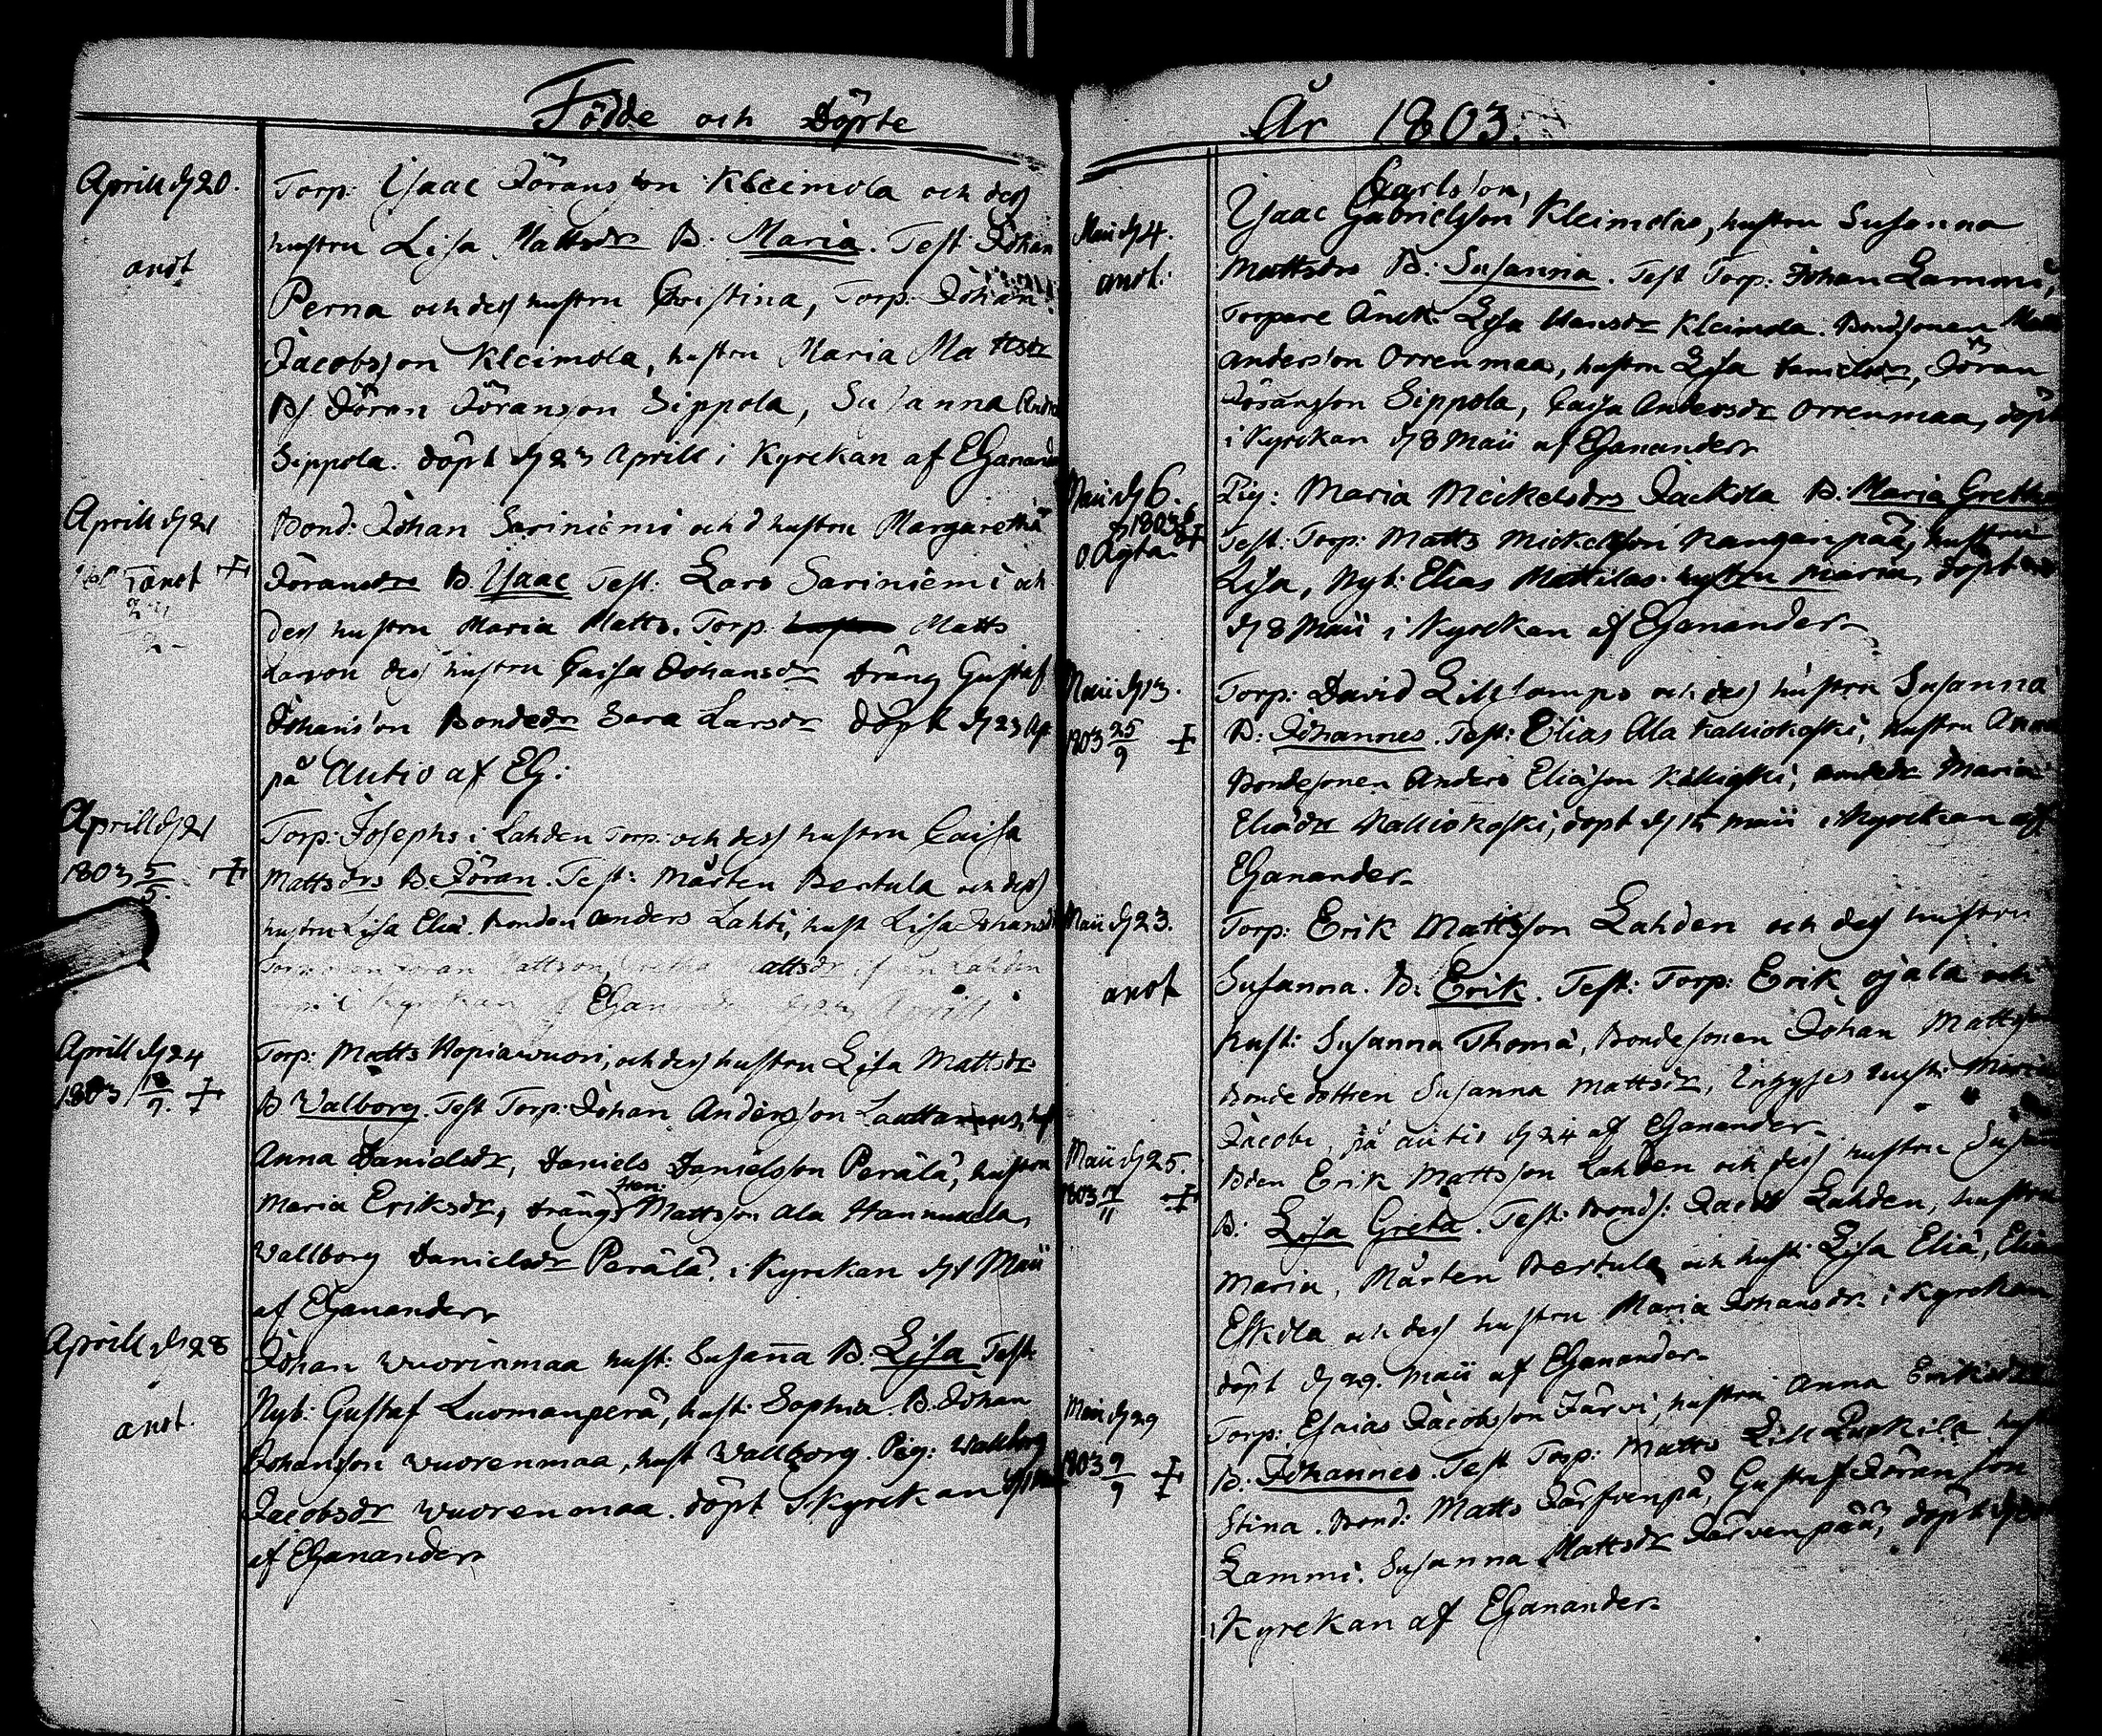 Födde och Döpte
Aprill d. 20.
anot
Torp: Isaac Jöransson Kleimola och dess
hustru Lisa Mattsdr B. Maria. Test Johan
Perna och dess hustru Christina, Torp: Johan
Jacobsson Kleimola, hustru Maria Mattsdr
Bs Jöran Jöransson Sippola, Susanna And
Sippola. döpt d 23 Aprill i Kyrckan af EGanander
Aprill d 21
anot +
Bond: Johan Sariniemi och d hustru Margaretha
Jöransdr B. Isaac Test: Lars Sariniemi och
dess hustru Maria Matts. Torp. Matts
Larsson dess hustru Caisa Johansdr dräng Gustaf
Johansson Bondedr Sara Larsdr döpt d 23 Ap
på Autio af EG:
Aprill d 21
1803 5/5. +
Torp: Josephs i Lahden Torp: och dess hustru Caisa
Mattsdrs B: Jöran. Test: Mårten Bertula och dess
hustru Lisa Eliæ. Bonden Anders Lahti, hust Lisa Johansdr
Jöran Mattsson, Mattsdr ifrån Lahden
i Kyrckan af EGanander Aprill
Aprill d 24
1803 +
Torp: Matts Hopiawuori, och dess hustru Lisa Mattsdr
B Valborg. Test Torp: Johan Andersson
Anna Danielsdr, Daniels Danielsson Perälä, hustru
Maria Eriksdr, drängs Mattsson Ala Hannuxela,
Wallborg Danielsdr Perälä. i Kyrckan d 1 Maii
af EGanander
Aprill d 28
anot.
Johan Wuorinmaa hust: Susanna B: Lisa Test:
Nyb: Gustaf Luomanperä, hust: Sophia. B. Johan
Johansson Wuorenmaa, hust Wallborg. Pig: Wallborg
Jacobsdr Wuorenmaa. döpt i Kyrckan
af EGanander
År 1803.
Maii d 4.
anot:
Carlsson,
Isaac Gabrielsson Kleimolas, hustru Susanna
Mattsdrs B: Susanna. Test Torp: Johan Lammi,
Torpare Änck: Lisa Hansdr Kleimola. Bondsonen Matts
Andersson Orrenmaa, hustru Lisa Danielsdr, Jöran
Jöransson Sippola, Caisa Andersdr Orrenmaa, döpt
i Kyrckan d 8 Maii af EGanander
Maii d 6.
1803 +
O Ägta.
Pig: Maria Mickelsdrs Jackola B: Maria Gretha
Test: Torp: Matts Mickelsson Kanganpää, hustru
Lisa, Nyb: Elias Mattilas hustru Maria, döpt
d 8 Maii i Kyrckan af EGanander
Maii d 13.
1803 25/9 +
Torp: David Lillkampo och dess hustru Susanna
B: Johannes. Test: Elias Ala Kalliokoski, hustru Anna
Bondesonen Anders Eliasson Kaliioski, Maria
Eliædr Kalliokoski, döpt d 15 Maii i Kyrckan af
EGanander
Maii d 23.
anot
Torp: Erik Mattsson Lahden och dess hustru
Susanna. B: Erik. Test: Torp: Erik Ojala och
hust: Susanna Thomæ, Bondesonen Johan Mattsson
Bondedottren Susanna Mattsdr, hust: Maria
Jacobi, på Autio d 24 af EGanander
Maii d 25.
1803 +
Bden Erik Mattsson Lahden och dess hustru Susan
B: Lisa Greta. Test: Bonds: Jacob Lahden, hustru
Maria, Mårten Bertula och hust: Lisa Eliæ, Elias
Eskola och dess hustru Maria Johansdr i Kyrckan
döpt d 29. Maii af EGanander
Maii d 29
1803 9/9 +
Torp: Esaias Jacobsson Järvi, hustru Anna Eriksdr
B: Johannes. Test Torp: Matts Lill Puckila hust
Stina. Bond: Matts Järfvenpä, Gustaf Jöransson
Lammi. Susanna Mattsdr Järvenpää, döpt
i Kyrckan af EGanander